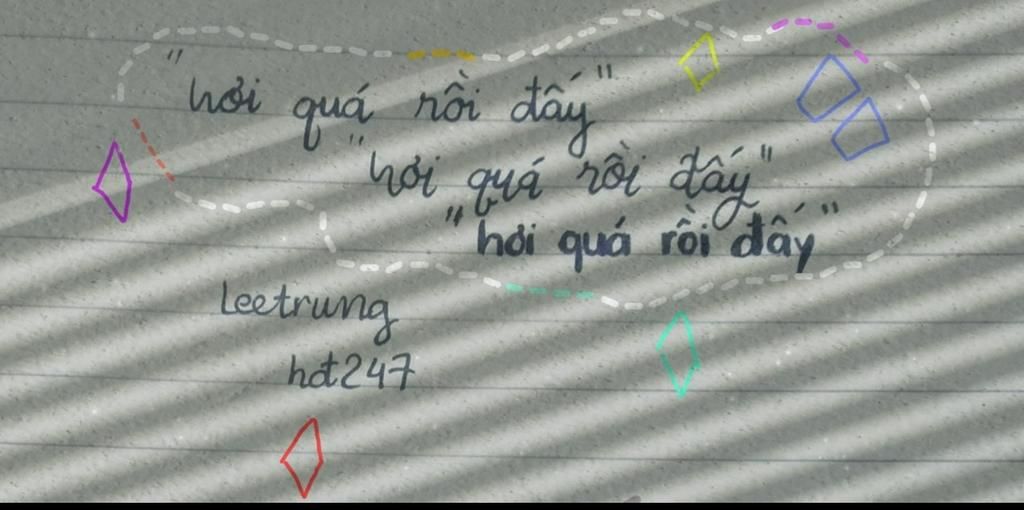 "hơi quá rồi đấy"
"hơi quá rồi đấy"
"hơi quá rồi đấy"
Leetrung
hđt247